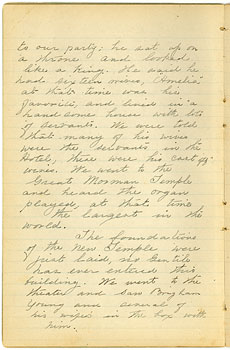 to our party; he sat up on
a throne and looked
like a King. He said he
had sixteen wives, Amelia
at that time was his
favorite, and lived in a
handsome house with lots
of servants. We were told
that many of his wives
were the servants, in the
Hotel, these were his cast off
wives. We went to the
Great Mormon Temple
and heard the organ
played, at that time
the largest in the
world.
The foundations
of the New Temple were
just laid, no Gentile
has ever entered this
building. We went to the
theater and saw Brigham
Young and several of
his wifes in the box with
him.